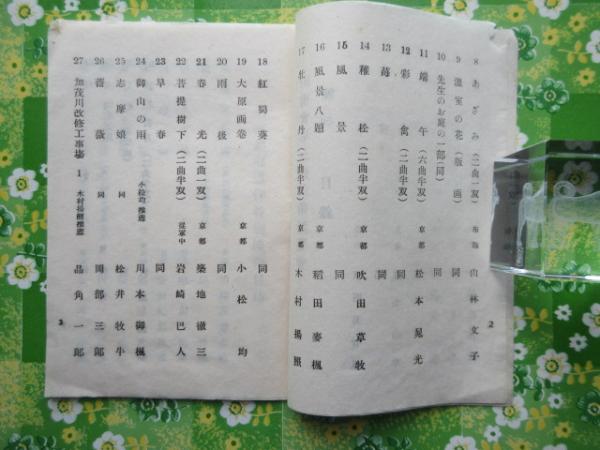 8 あざみ(二曲一双) 山林文子
9 温室の花(版画) 同
10 先生のお庭の一部(同) 同
11 端午(六曲半双) 京都 松本晃光
12 彩禽(二曲半双) 同
13 苺 同
14 稚松(二曲半双) 京都 吹田草牧
15 風景 同
16 風景八題 同 稲田麥楓
17 牡丹(二曲半双) 京都 木村揚熈
2
18 紅蜀葵 同
19 大原画巻 京都 小松均
20 雨後 同
21 春光(二曲一双) 京都 築地徹三
22 菩提樹下(二曲半双) 従軍中 岩崎巴人
23 早春 同
24 御山の雨 小松均推薦 川本御楓
25 志摩娘 同 松井牧牛
26 薔薇 同 岡部三郎
27 加茂川改修工事場 1 木村揚熈推薦 晶角一郎
3